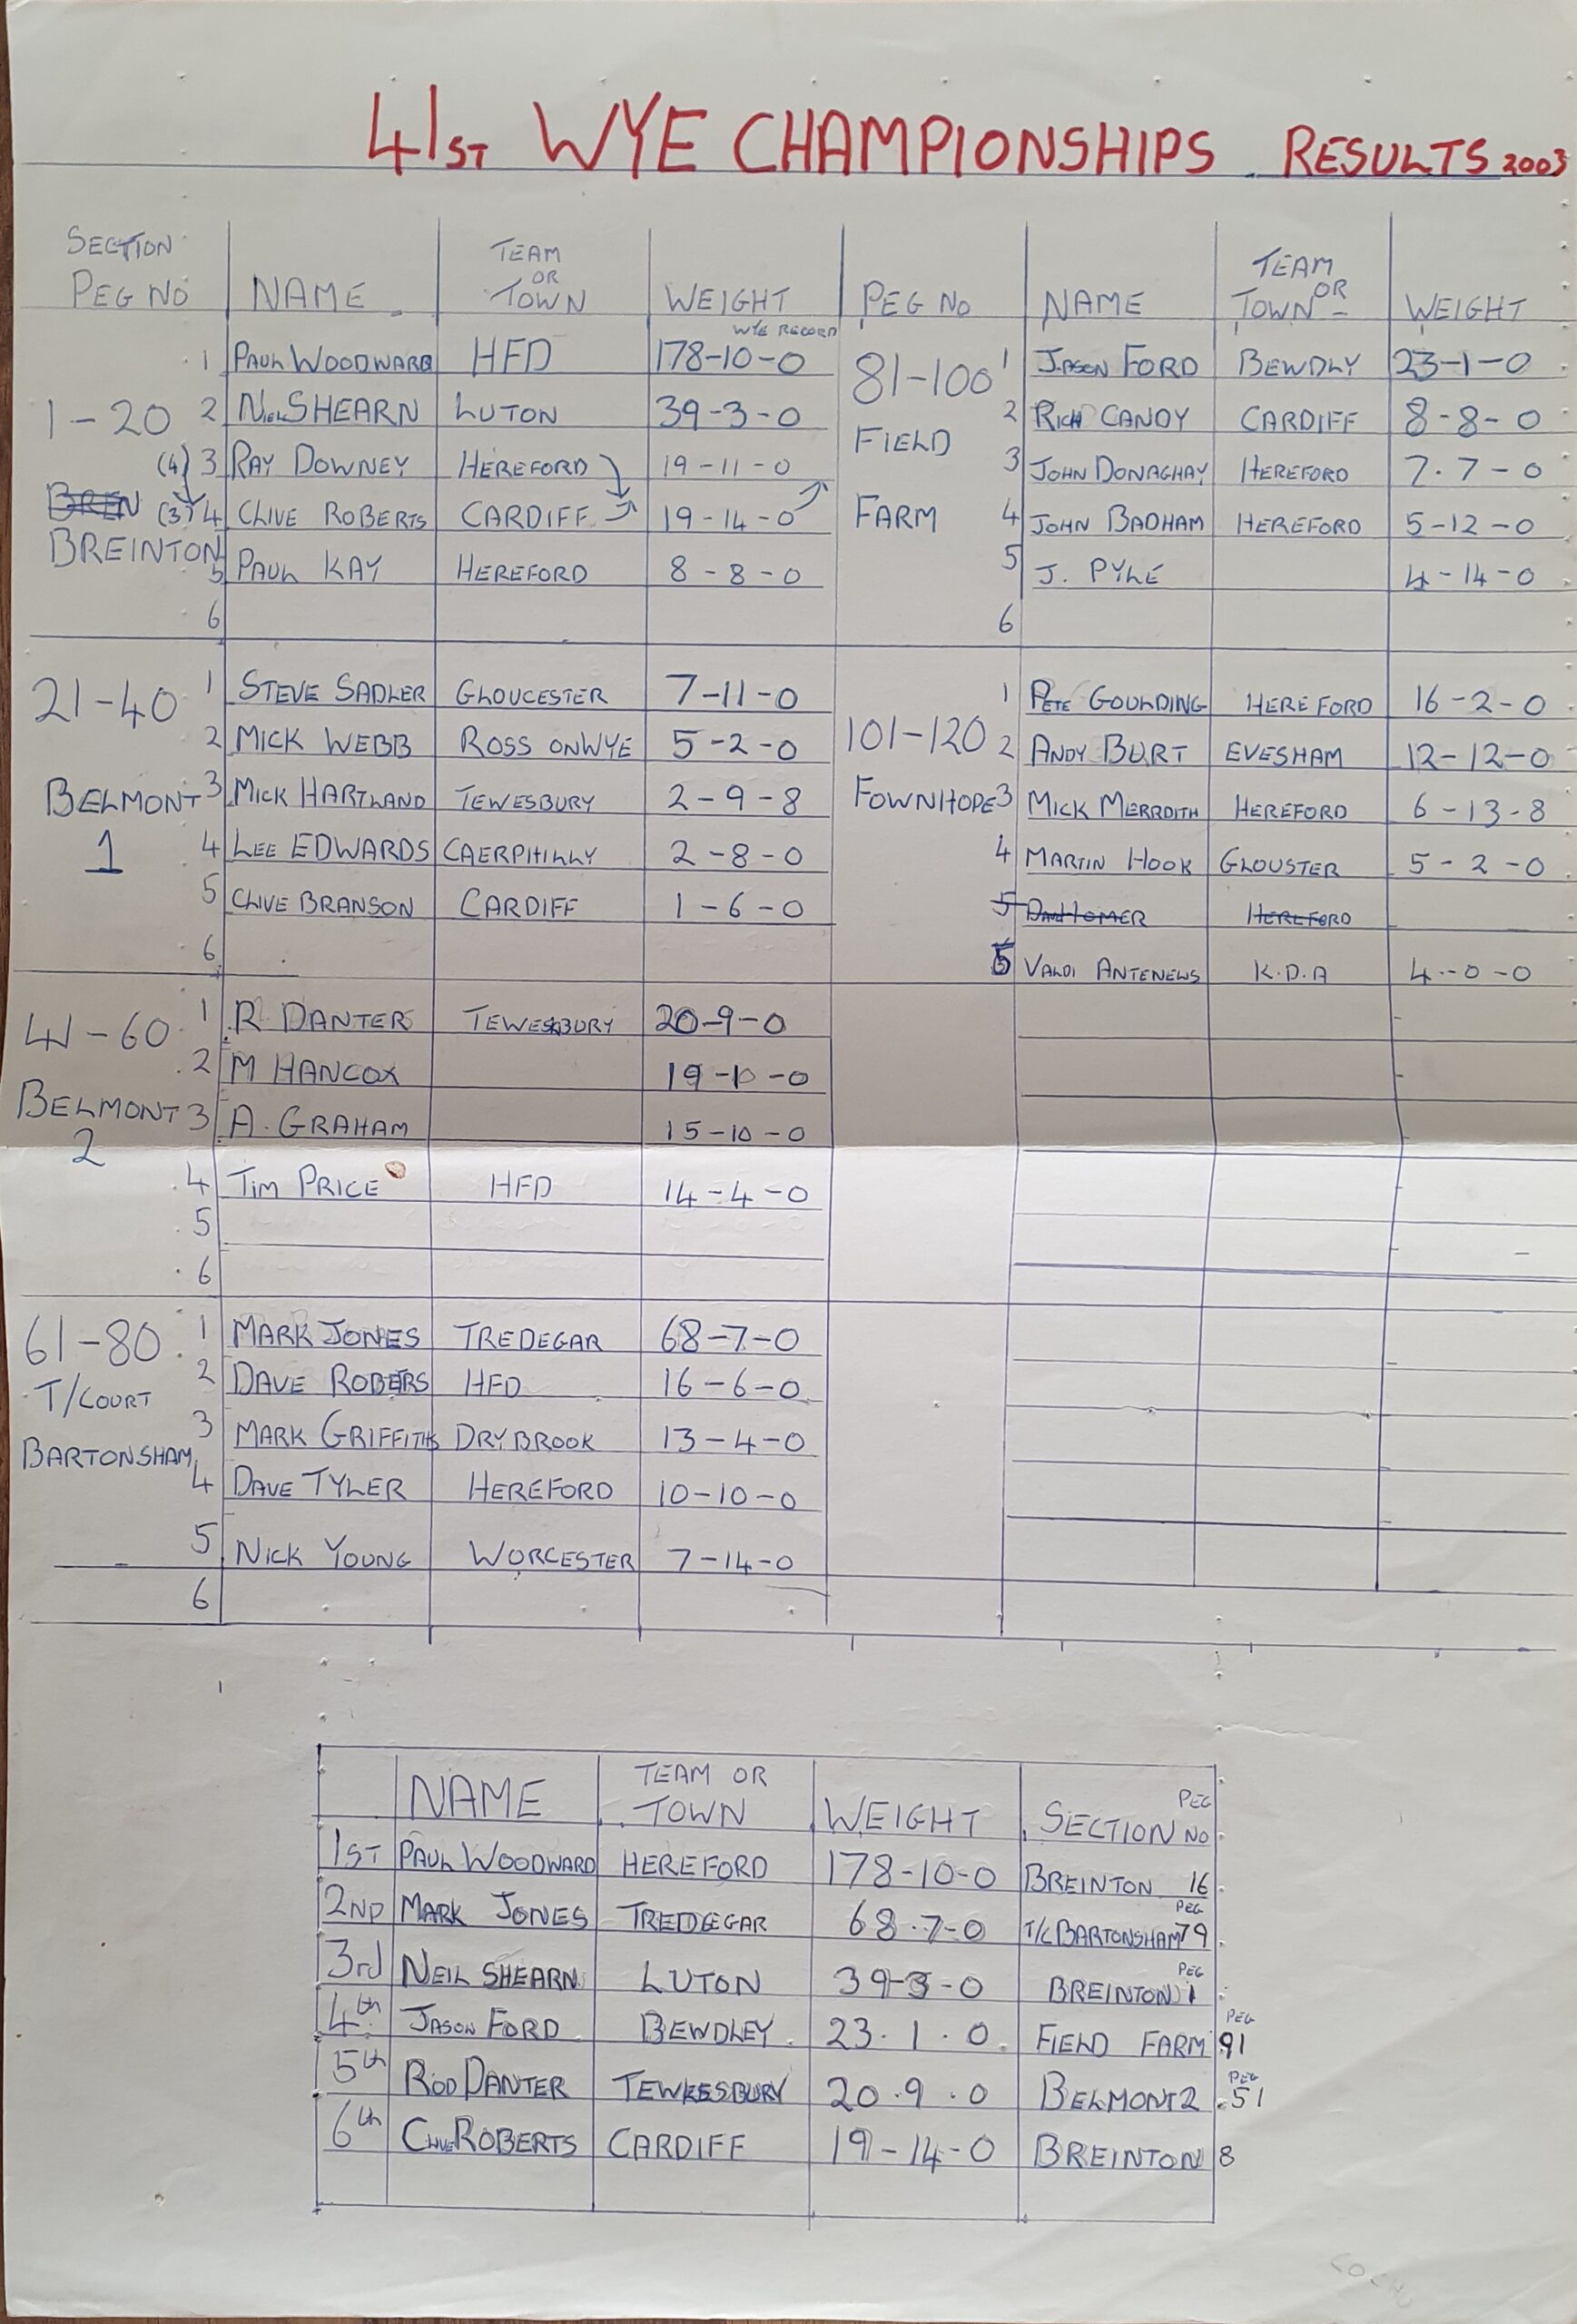 41ST WYE CHAMPIONSHIPS . RESULTS 2003
SECTION PEG NO NAME TEAM OR TOWN WEIGHT PEG NO NAME TEAM OR TOWN WEIGHT
WYE RECORD
1-20 BREINTON
1 PAUL WOODWARD HFD 178-10-0
2 NIEL SHEARN LUTON 39-3-0
(4) 3 RAY DOWNEY HEREFORD 19-11-0
BREN (3) 4 CLIVE ROBERTS CARDIFF 19-14-0
5 PAUL KAY HEREFORD 8-8-0
6
21-40 BELMONT 1
1 STEVE SADLER GLOUCESTER 7-11-0
2 MICK WEBB ROSS ONWYE 5-2-0
3 MICK HARTLAND TEWESBURY 2-9-8
4 LEE EDWARDS CAERPHILLY 2-8-0
5 CLIVE BRANSON CARDIFF 1-6-0
6
41-60 BELMONT 2
1 R DANTER TEWESBURY 20-9-0
2 M HANCOX 19-10-0
3 A. GRAHAM 15-10-0
4 TIM PRICE HFD 14-4-0
5
6
61-80 T/COURT BARTONSHAM
1 MARK JONES TREDEGAR 68-7-0
2 DAVE ROBERS HFD 16-6-0
3 MARK GRIFFITHS DRYBROOK 13-4-0
4 DAVE TYLER HEREFORD 10-10-0
5 NICK YOUNG WORCESTER 7-14-0
6
81-100 FIELD FARM
1 JASON FORD BEWDLY 23-1-0
2 RICH CANDY CARDIFF 8-8-0
3 JOHN DONAGHAY HEREFORD 7.7-0
4 JOHN BADHAM HEREFORD 5-12-0
5 J. PYLE 4-14-0
6
101-120 FOWNHOPE
1 PETE GOULDING HEREFORD 16-2-0
2 ANDY BURT EVESHAM 12-12-0
3 MICK MERRDITH HEREFORD 6-13-8
4 MARTIN HOOK GLOUSTER 5-2-0
5 HOMER HEREFORD
5 VALDI ANTENEWS K.D.A 4-0-0
NAME TEAM OR TOWN WEIGHT SECTION PEG NO
1ST PAUL WOODWARD HEREFORD 178-10-0 BREINTON 16
2ND MARK JONES TREDEGAR 68.7-0 T/C BARTONSHAM PEG 79
3rd NEIL SHEARN LUTON 39-3-0 BREINTON PEG 1
4th JASON FORD BEWDLEY 23.1.0 FIELD FARM PEG 91
5th ROD DANTER TEWKESBURY 20.9.0 BELMONT 2 PEG 51
6th CLIVE ROBERTS CARDIFF 19-14-0 BREINTON 8